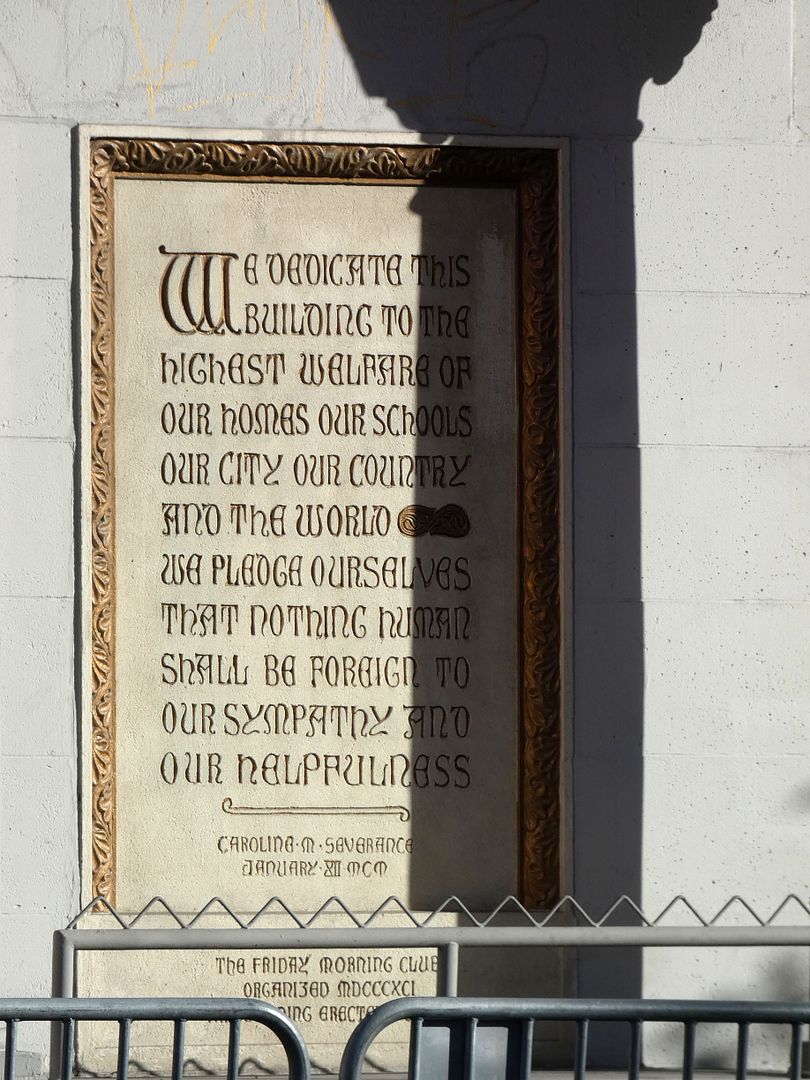 WE DEDICATE THIS
BUILDING TO THE
HIGHEST WELFARE OF
OUR HOMES OUR SCHOOLS
OUR CITY OUR COUNTRY
AND THE WORLD
WE PLEDGE OURSELVES
THAT NOTHING HUMAN
SHALL BE FOREIGN TO
OUR SYMPATHY AND
OUR HELPFULNESS
CAROLINE·M·SEVERANCE
JANUARY·XII·MCM
THE FRIDAY MORNING CLUB
ORGANIZED MDCCCXCI